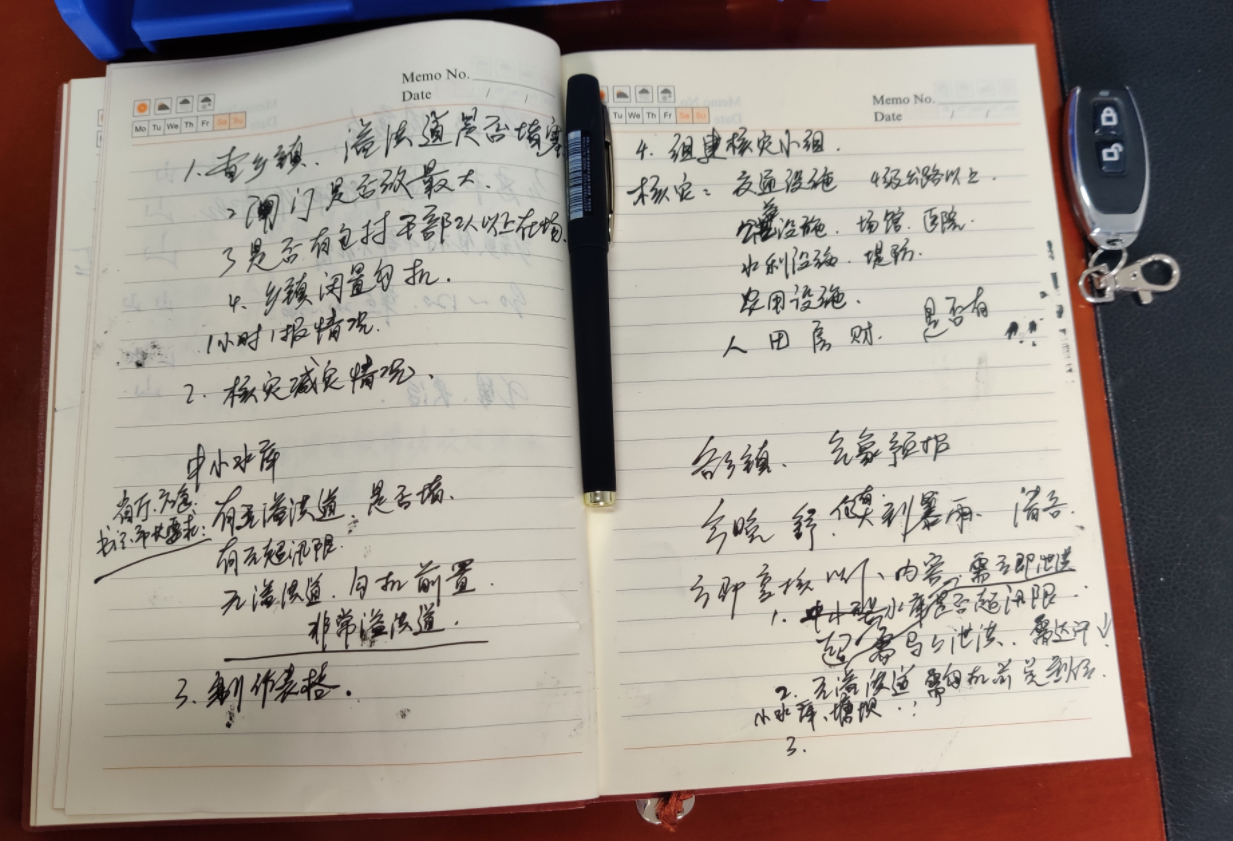 Memo No.
Date / /
Mo Tu We Th Fr Sa Su
1. 查乡镇、溢洪道是否堵塞
2 闸门是否放最大.
3 是否有包村干部2人以上在场.
4. 乡镇闲置勾机.
1小时1报情况.
2. 核灾减灾情况.
中小水库
省厅、应急
要求:
有无溢洪道、是否堵.
有无超汛限.
无溢洪道、勾机前置.
非常溢洪道.
3. 制作表格.
Memo No.
Date / /
Tu We Th Fr Sa Su
4. 组建核灾小组.
核灾: 交通设施 4级公路以上.
公共设施. 场馆. 医院
水利设施. 堤防.
农用设施.
人 田 房 财. 是否有
各乡镇、气象预报
今晚 到暴雨、请各.
立即查核以下内容, 需立即泄洪
1. 中小水库是否超汛限.
超 需马上泄洪.
2. 无溢洪道需勾机前
小水库、塘坝.
3.